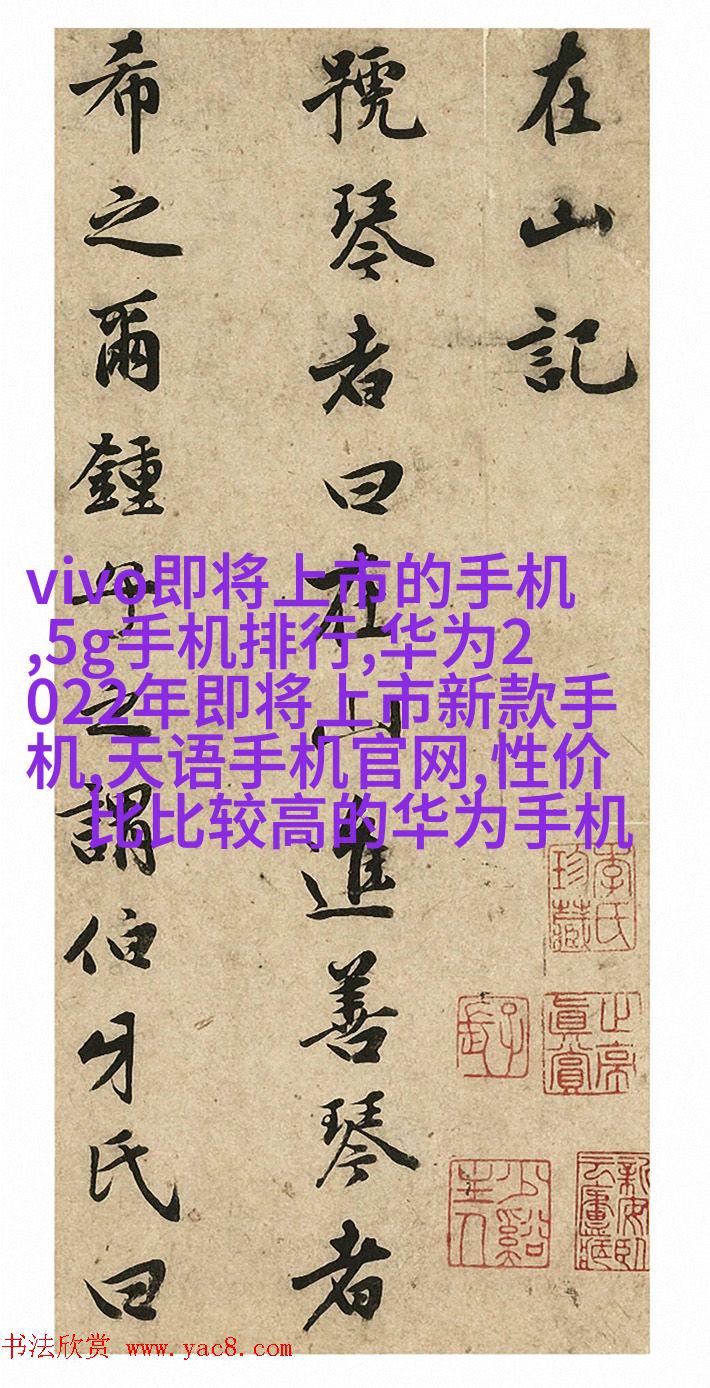 在山記
號琴者曰在山進善琴者
希之爾鍾子之謂伯牙氏曰
vivo即将上市的手机
,5g手机排行,华为2
022年即将上市新款手
机,天语手机官网,性价
比比较高的华为手机
季氏珍藏
止亭眞賞
少谿主人
书法欣赏 www.yac8.com